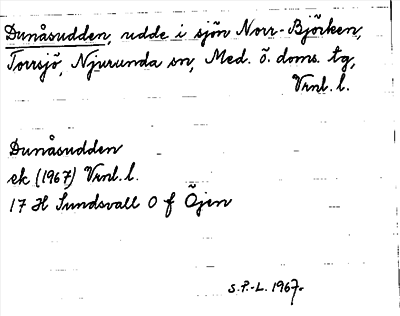 Dunåsudden, udde i sjön Norr-Björken,
Torrsjö, Njurunda sn, Med. ö. doms. tg,
Vrnl. l.
Dunåsudden
ek (1967) Vrnl. l.
17 H Sundsvall O f Öjen
S.P.-L. 1967.